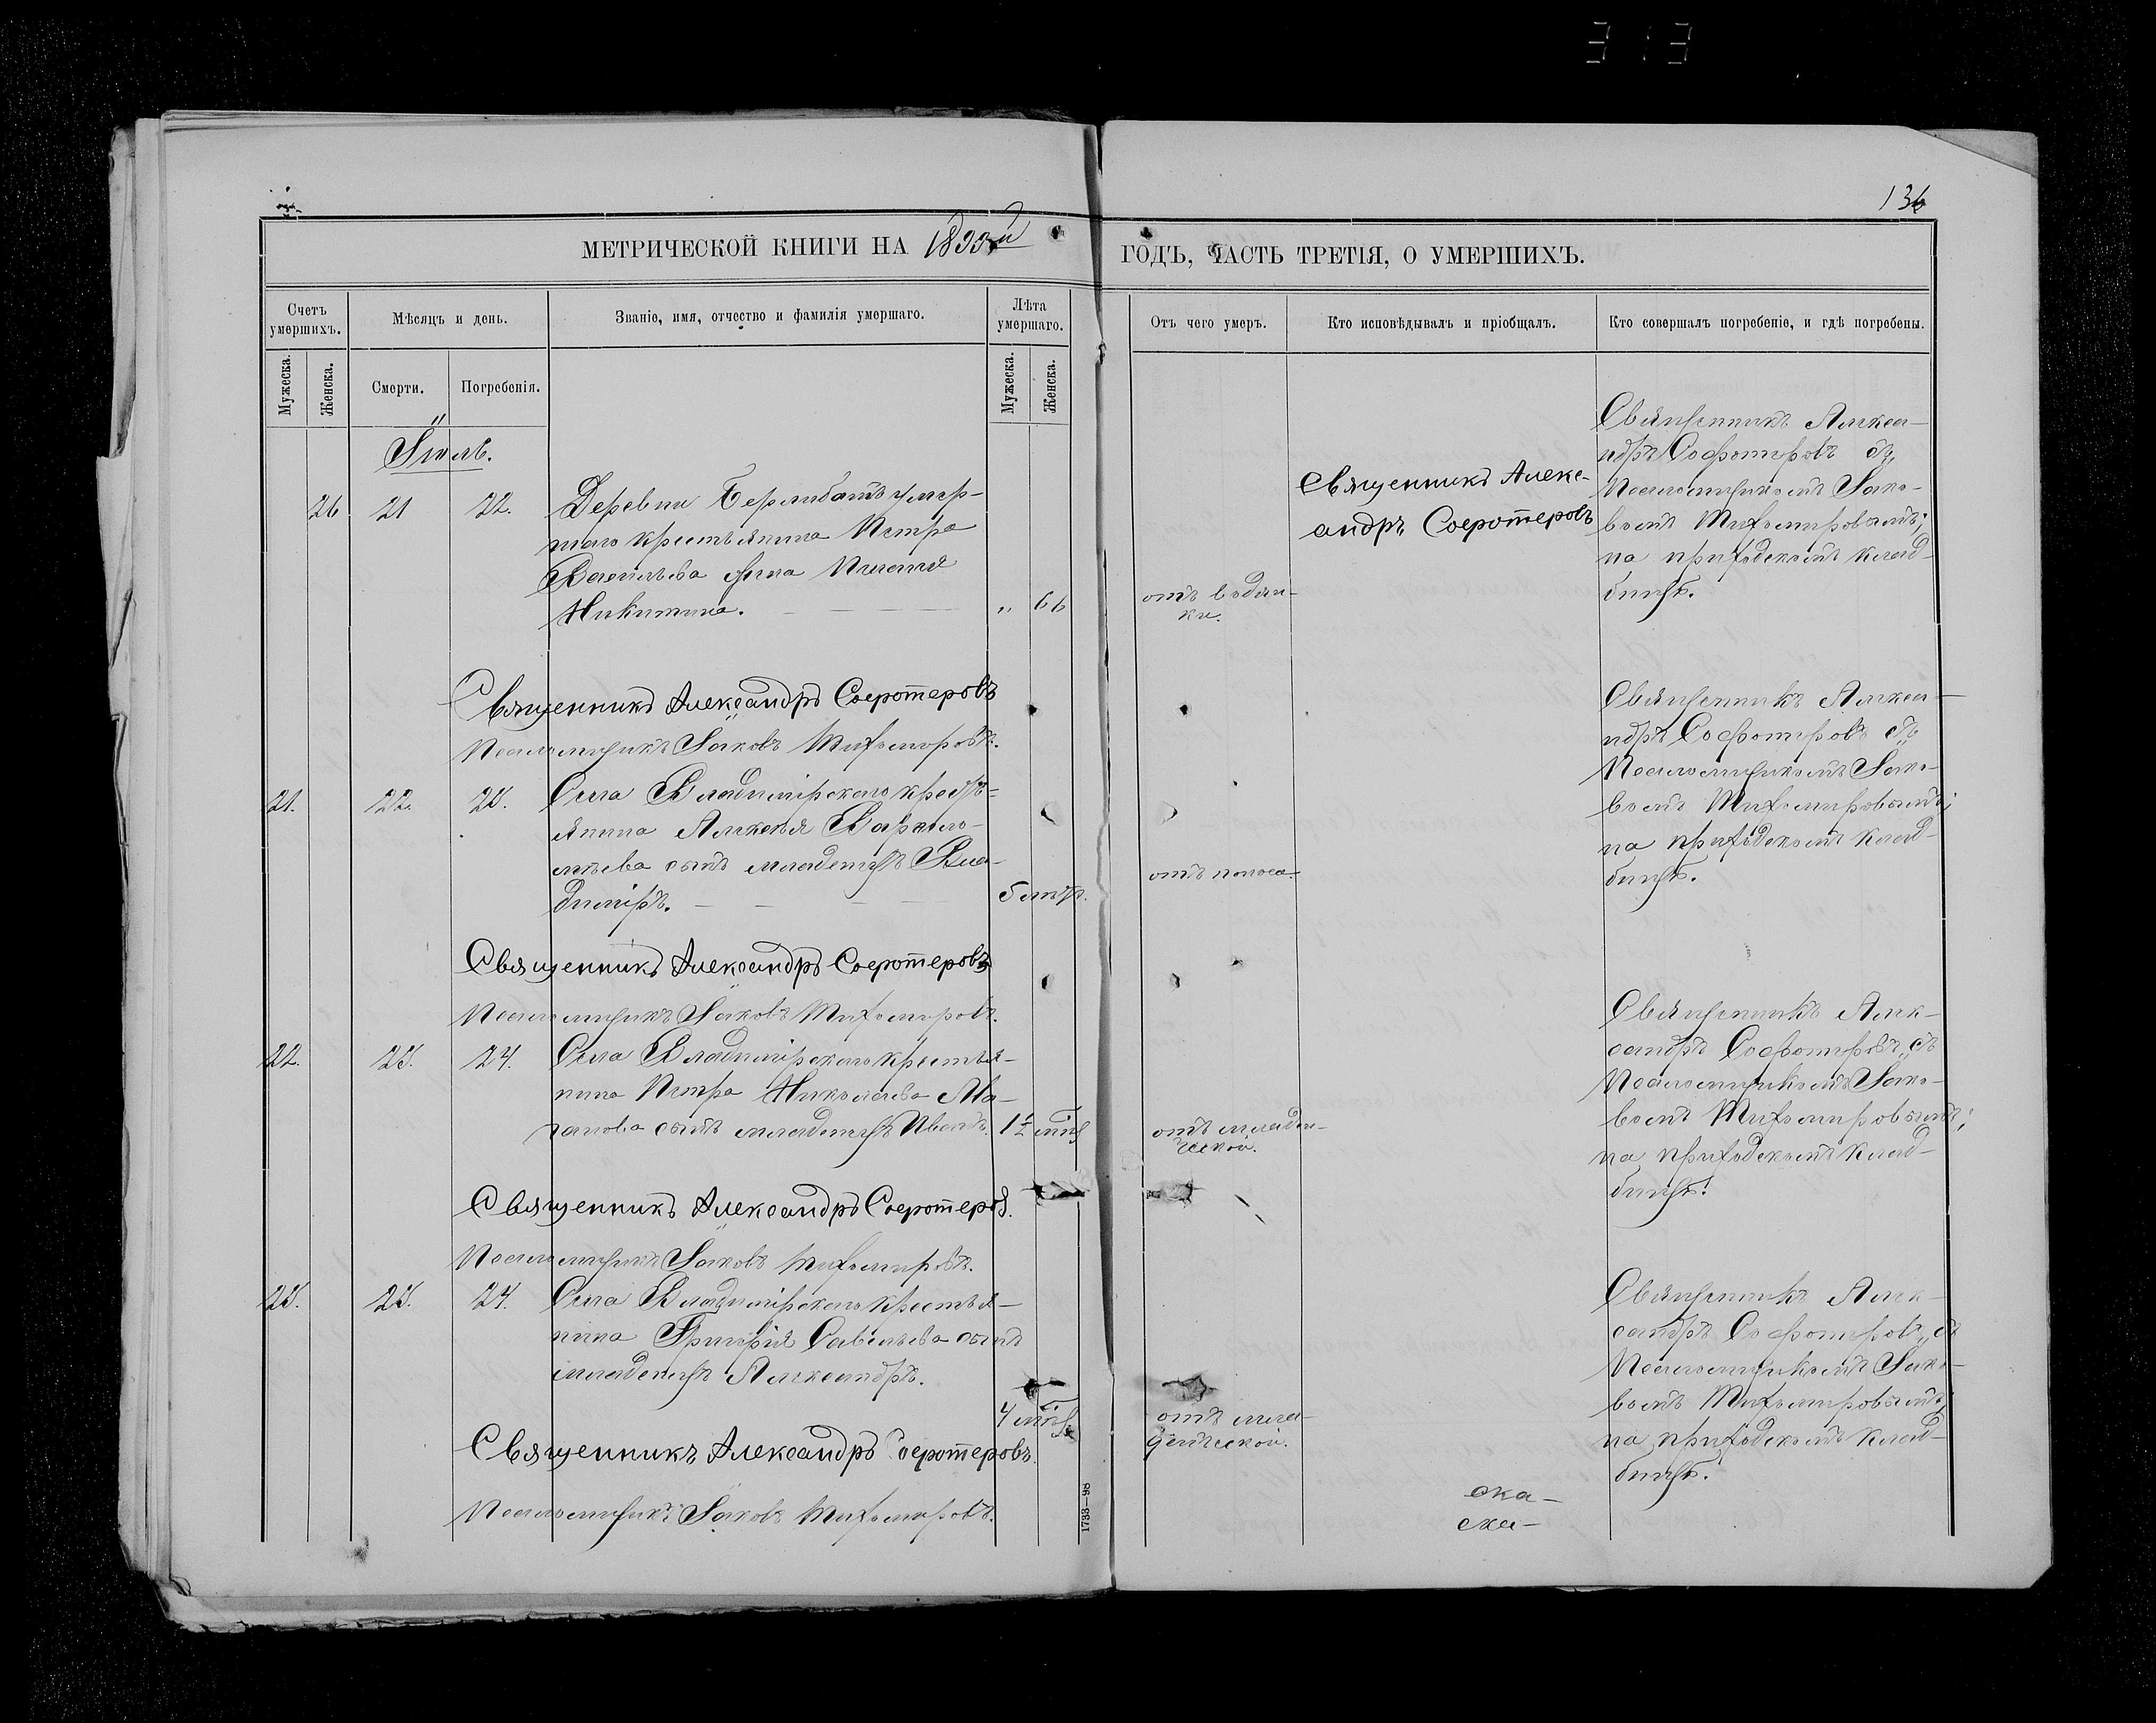 313
136
МЕТРИЧЕСКОЙ КНИГИ НА 1899й ГОДЪ, ЧАСТЬ ТРЕТІЯ, О УМЕРШИХЪ.
Счетъ умершихъ.
Мѣсяцъ и день.
Званіе, имя, отчество и фамилія умершаго.
Лѣта умершаго.
Отъ чего умеръ.
Кто исповѣдывалъ и пріобщалъ.
Кто совершалъ погребеніе, и гдѣ погребены.
Мужеска.
Женска.
Смерти.
Погребенія.
Мужеска.
Женска.
Іюль.
26
21
22.
Деревни умер-
шаго крестьянина Петра
Васильева жена Пелагія
Никитина.
„ 66
отъ водян-
ки.
Священникъ Алекс-
андръ Соѳотеровъ
Священникъ Алекса-
ндръ Соѳотеровъ съ
Псаломщикомъ Іако-
вомъ Тихомировымъ;
на приходскомъ клад-
бищѣ.
Священникъ Александръ Соѳотеровъ
Псаломщикъ Іаковъ Тихомировъ.
21.
22.
23.
Села Владимірскаго кресть-
янина Алексѣя Варѳоло-
меева сынъ младенецъ Вла-
диміръ.
отъ поноса
Священникъ Алекса-
ндръ Соѳотеровъ съ
Псаломщикомъ Іако-
вомъ Тихомировымъ;
на приходскомъ клад-
бищѣ.
Священникъ Александръ Соѳотеровъ
Псаломщикъ Іаковъ Тихомировъ.
22.
23.
24.
Села Владимірскаго крестья-
нина Петра Николаева Ма-
сынъ младенецъ Иванъ.
1½ мѣс
отъ младен-
ческой.
Священникъ Алек-
сандръ Соѳотеровъ съ
Псаломщикомъ Іако-
вомъ Тихомировымъ;
на приходскомъ клад-
бищѣ.
Священникъ Александръ Соѳотеров.
Псаломщикъ Іаковъ Тихомировъ.
23.
23.
24.
Села Владимірскаго крестья-
нина Григорія Савельева сынъ
младенецъ Александръ.
4 мѣс
отъ мла-
денческой.
Священникъ Алек-
сандръ Соѳотеровъ съ
Псаломщикомъ Іако-
вомъ Тихомировымъ;
на приходскомъ клад-
бищѣ.
Священникъ Александръ Соѳотеровъ.
Псаломщикъ Іаковъ Тихомировъ.
ска-
1733—98